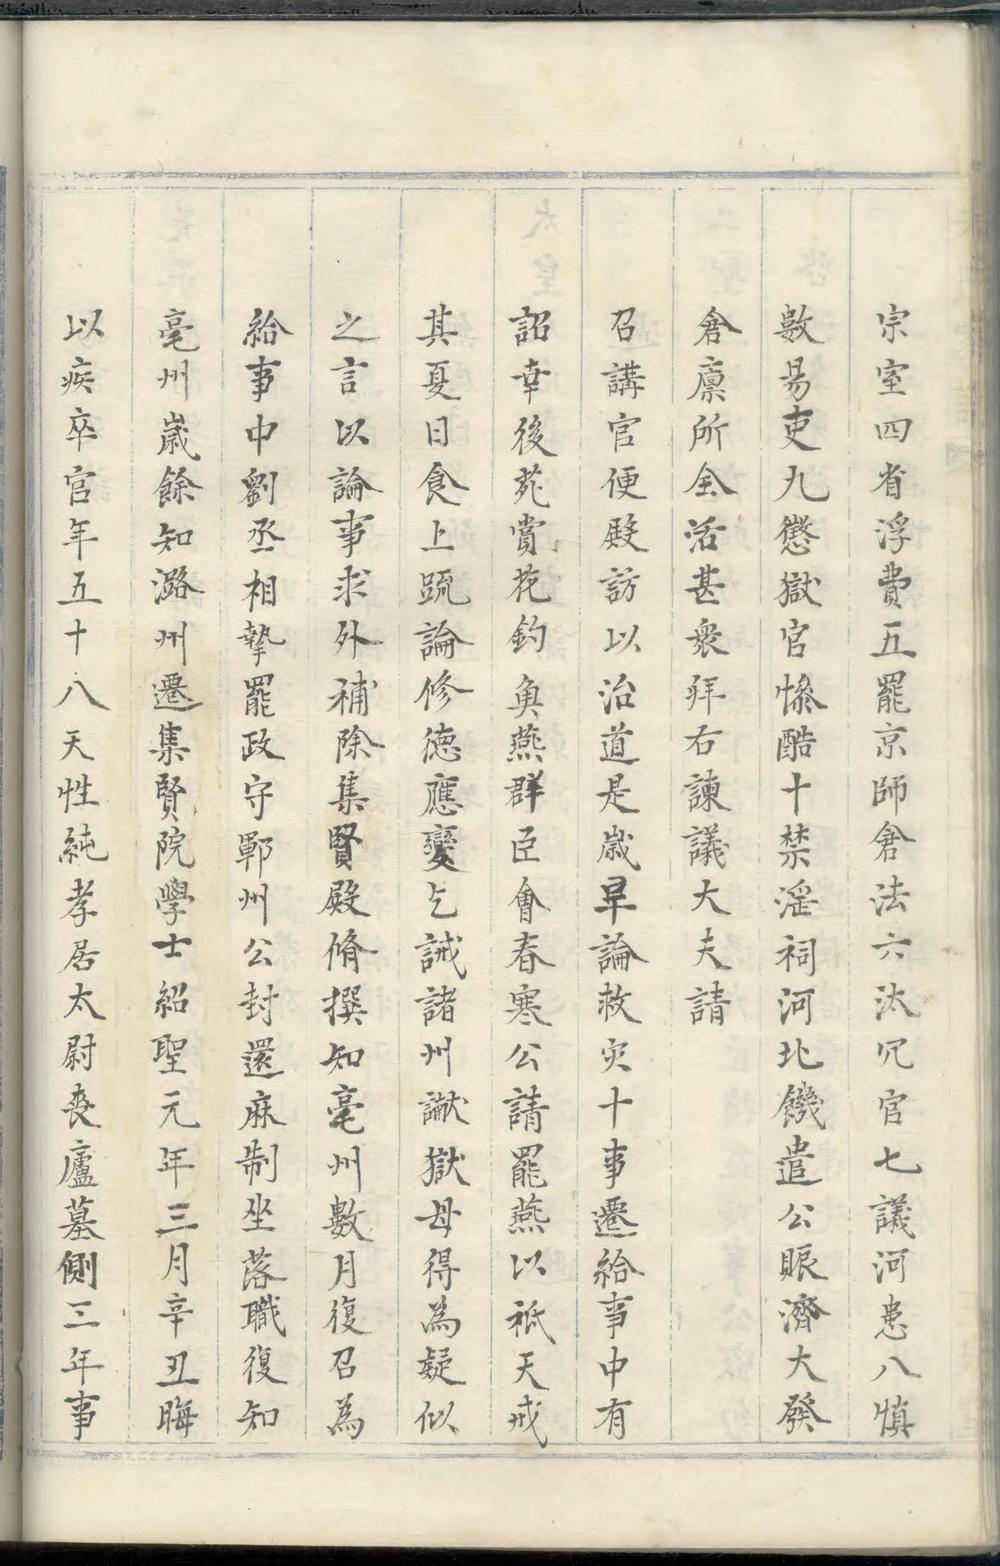 宗室四省浮費五罷京師倉法六汰冗官七議河患八慎
數易吏九懲獄官慘酷十禁滛祠河北饑遣公賑濟大發
倉廩所全活甚衆拜右諫議大夫請
召講官便殿訪以治道是歲旱論救灾十事遷給事中有
詔幸後苑賞花釣魚燕群臣會春寒公請罷燕以祗天戒
其夏日食上疏論修德應變乞誡諸州讞獄母得為疑似
之言以論事求外補除集賢殿脩撰知亳州數月復召為
給事中劉丞相摯罷政守鄆州公封還麻制坐落職復知
亳州嵗餘知潞州遷集賢院學士紹聖元年三月辛丑晦
以疾卒官年五十八天性純孝居太尉喪廬墓側三年事